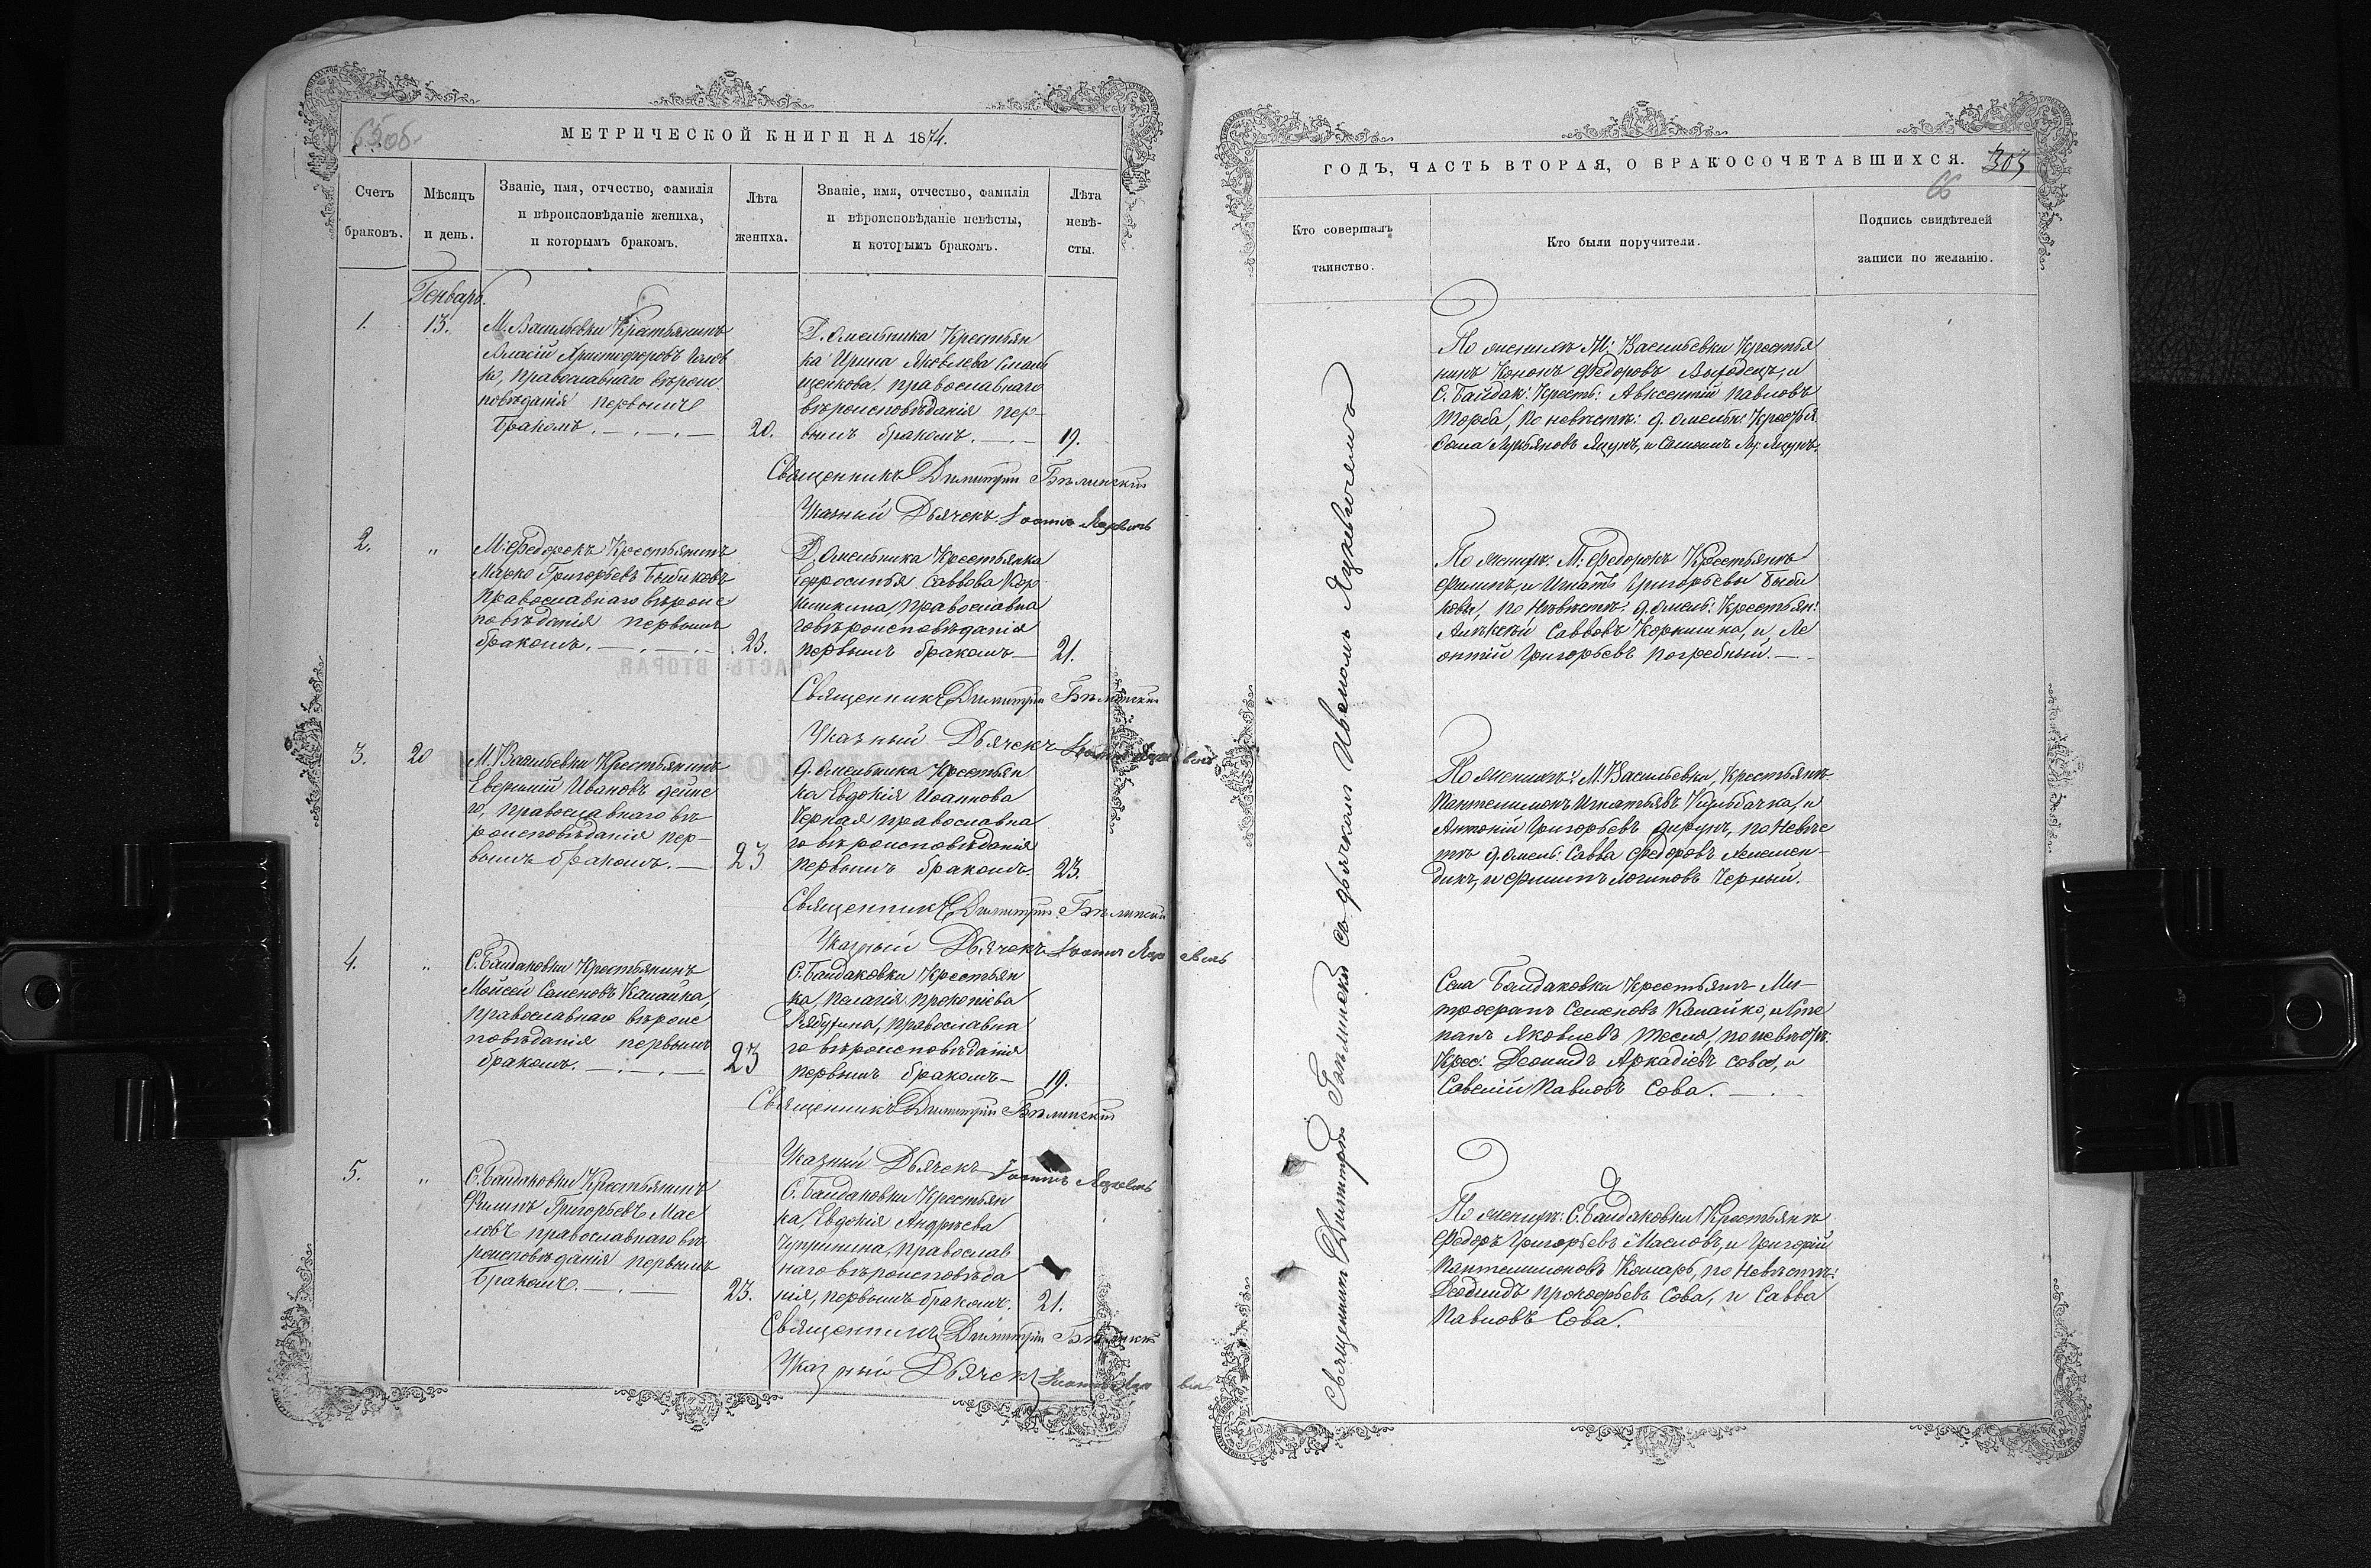 65об
МЕТРИЧЕСКОЙ КНИГИ НА 1874.
Счетъ
браковъ.
Мѣсяцъ
и день.
Званіе, имя, отчество, фамилія
и вѣроисповѣданіе жениха,
и которымъ бракомъ.
Лѣта
жениха.
Званіе, имя, отчество, фамилія
и вѣроисповѣданіе невѣсты,
и которымъ бракомъ.
Лѣта
невѣ-
сты.
Генварь.
1.
13.
М. Васильевки Крестьянинъ
Христофоровъ
православнаго вѣроис
повѣданія первымъ
бракомъ.
20.
Д. Омельника Крестьян
ка Ирина Яковлева
православнаго
вѣроисповѣданія пер-
вымъ бракомъ.
19.
Священникъ Димитрій Бѣлинскій
Указный Дьячекъ Іоаннъ
2.
"
М. Федорокъ Крестьянинъ
Марко Григорьевъ Быбиковъ
православнаго вѣроис
повѣданія первымъ
бракомъ.
23.
Д. Омельника Крестьянка
Евфросинья Саввова Кор
кишкина, православна
го вѣроисповѣданія
первымъ бракомъ
21.
Священникъ Димитрій Бѣлинскій
Указный Дьячекъ Іоаннъ
3.
20
М. Васильевки Крестьянинъ
Ивановъ Дейне
православнаго вѣ
роисповѣданія пер-
вымъ бракомъ.
23
Д. Омельника Крестьян
ка Евдокія Иоаннова
Черная православна
го вѣроисповѣданія
первымъ бракомъ.
23.
Священникъ Димитрій Бѣлинскій
Указный Дьячекъ Іоаннъ
4.
"
С. Байдаковки Крестьянинъ
Моисей Семеновъ Канайка,
православнаго вѣроис
повѣданія первымъ
бракомъ.
23
С. Байдаковки Крестьян
ка, Пелагія Прокопіева
Рябухина, православна
го вѣроисповѣданія
первымъ бракомъ
19.
Священникъ Димитрій Бѣлинскій
Указный Дьячекъ Іоаннъ
5.
"
С. Байдаковки Крестьянинъ
Филипъ Григорьевъ Мас
ловъ православнаго вѣ
роисповѣданія первымъ
бракомъ.
23.
С. Байдаковки Крестьян
ка, Евдокія Андрѣева
Чупринина, православ
наго вѣроисповѣда
нія, первымъ бракомъ.
21.
Священникъ Димитрій Бѣлинскій
Указный Дьячекъ Іоаннъ
ГОДЪ, ЧАСТЬ ВТОРАЯ, О БРАКОСОЧЕТАВШИХСЯ.
303
66
Кто совершалъ
таинство.
Кто были поручители.
Подпись свидѣтелей
записи по желанію.
Священникъ Димитрій Бѣлинскій со дьячкомъ
По женихѣ М. Васильевки Крестья
нинъ Кононъ Федоровъ и
С. Байдак: Кресть: Авксентій Павловъ
Торба, по невѣстѣ: Д. Омельн: Крестья
Лукьяновъ Яцунъ, и Лу: Яцунъ.
По женихѣ: М. Федорокъ Крестьянъ
Филипъ, и Игнатъ Григорьевы Быби
ковы, по невѣстѣ: Д. Омель: Крестьян:
Алѣксѣй Саввовъ Коркишка, и Ле
онтій Григорьевъ Погребный.
По женихѣ: М. Васильевки, Крестьянъ.
Пантелимонъ Игнатьевъ Кульбачка, и
Антоній Григорьевъ по Невѣс
тѣ Д. Омель: Савва Федоровъ
и Филипъ Логиновъ Черный.
Села Байдаковки Крестьянъ Ми-
трофанъ Семеновъ Канайко, и Сте
панъ Яковлевъ Тесля, по невѣстѣ:
Крес: Леонидъ Аркадіевъ Сова, и
Савелій Павловъ Сова.
По женихѣ: С. Байдаковки Крестьянъ
Федоръ Григорьевъ Масловъ, и Григорій
Пантелимоновъ Комаръ, по Невѣстѣ:
Леонидъ Прокофьевъ Сова, и Савва
Павловъ Сова.